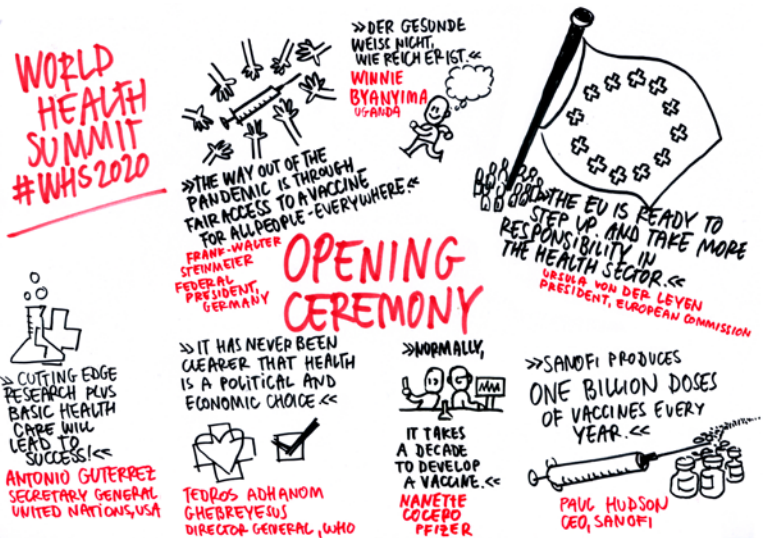 WORLD
HEALTH
SUMMIT
#WHS2020
»THE WAY OUT OF THE
PANDEMIC IS THROUGH
FAIR ACCESS TO A VACCINE
FOR ALL PEOPLE - EVERYWHERE.«
FRANK-WALTER
STEINMEIER
FEDERAL
PRESIDENT,
GERMANY
»DER GESUNDE
WEISS NICHT,
WIE REICH ER IST.«
WINNIE
BYANYIMA
UGANDA
»THE EU IS READY TO
STEP UP AND TAKE MORE
RESPONSIBILITY IN
THE HEALTH SECTOR.«
URSULA VON DER LEYEN
PRESIDENT, EUROPEAN COMMISSION
OPENING
CEREMONY
»CUTTING EDGE
RESEARCH PLUS
BASIC HEALTH
CARE WILL
LEAD TO
SUCCESS!«
ANTONIO GUTERREZ
SECRETARY GENERAL
UNITED NATIONS, USA
»IT HAS NEVER BEEN
CLEARER THAT HEALTH
IS A POLITICAL AND
ECONOMIC CHOICE«
TEDROS ADHANOM
GHEBREYESUS
DIRECTOR GENERAL, WHO
»NORMALLY,
IT TAKES
A DECADE
TO DEVELOP
A VACCINE.«
NANETTE
COCERO
PFIZER
»SANOFI PRODUCES
ONE BILLION DOSES
OF VACCINES EVERY
YEAR.«
PAUL HUDSON
CEO, SANOFI